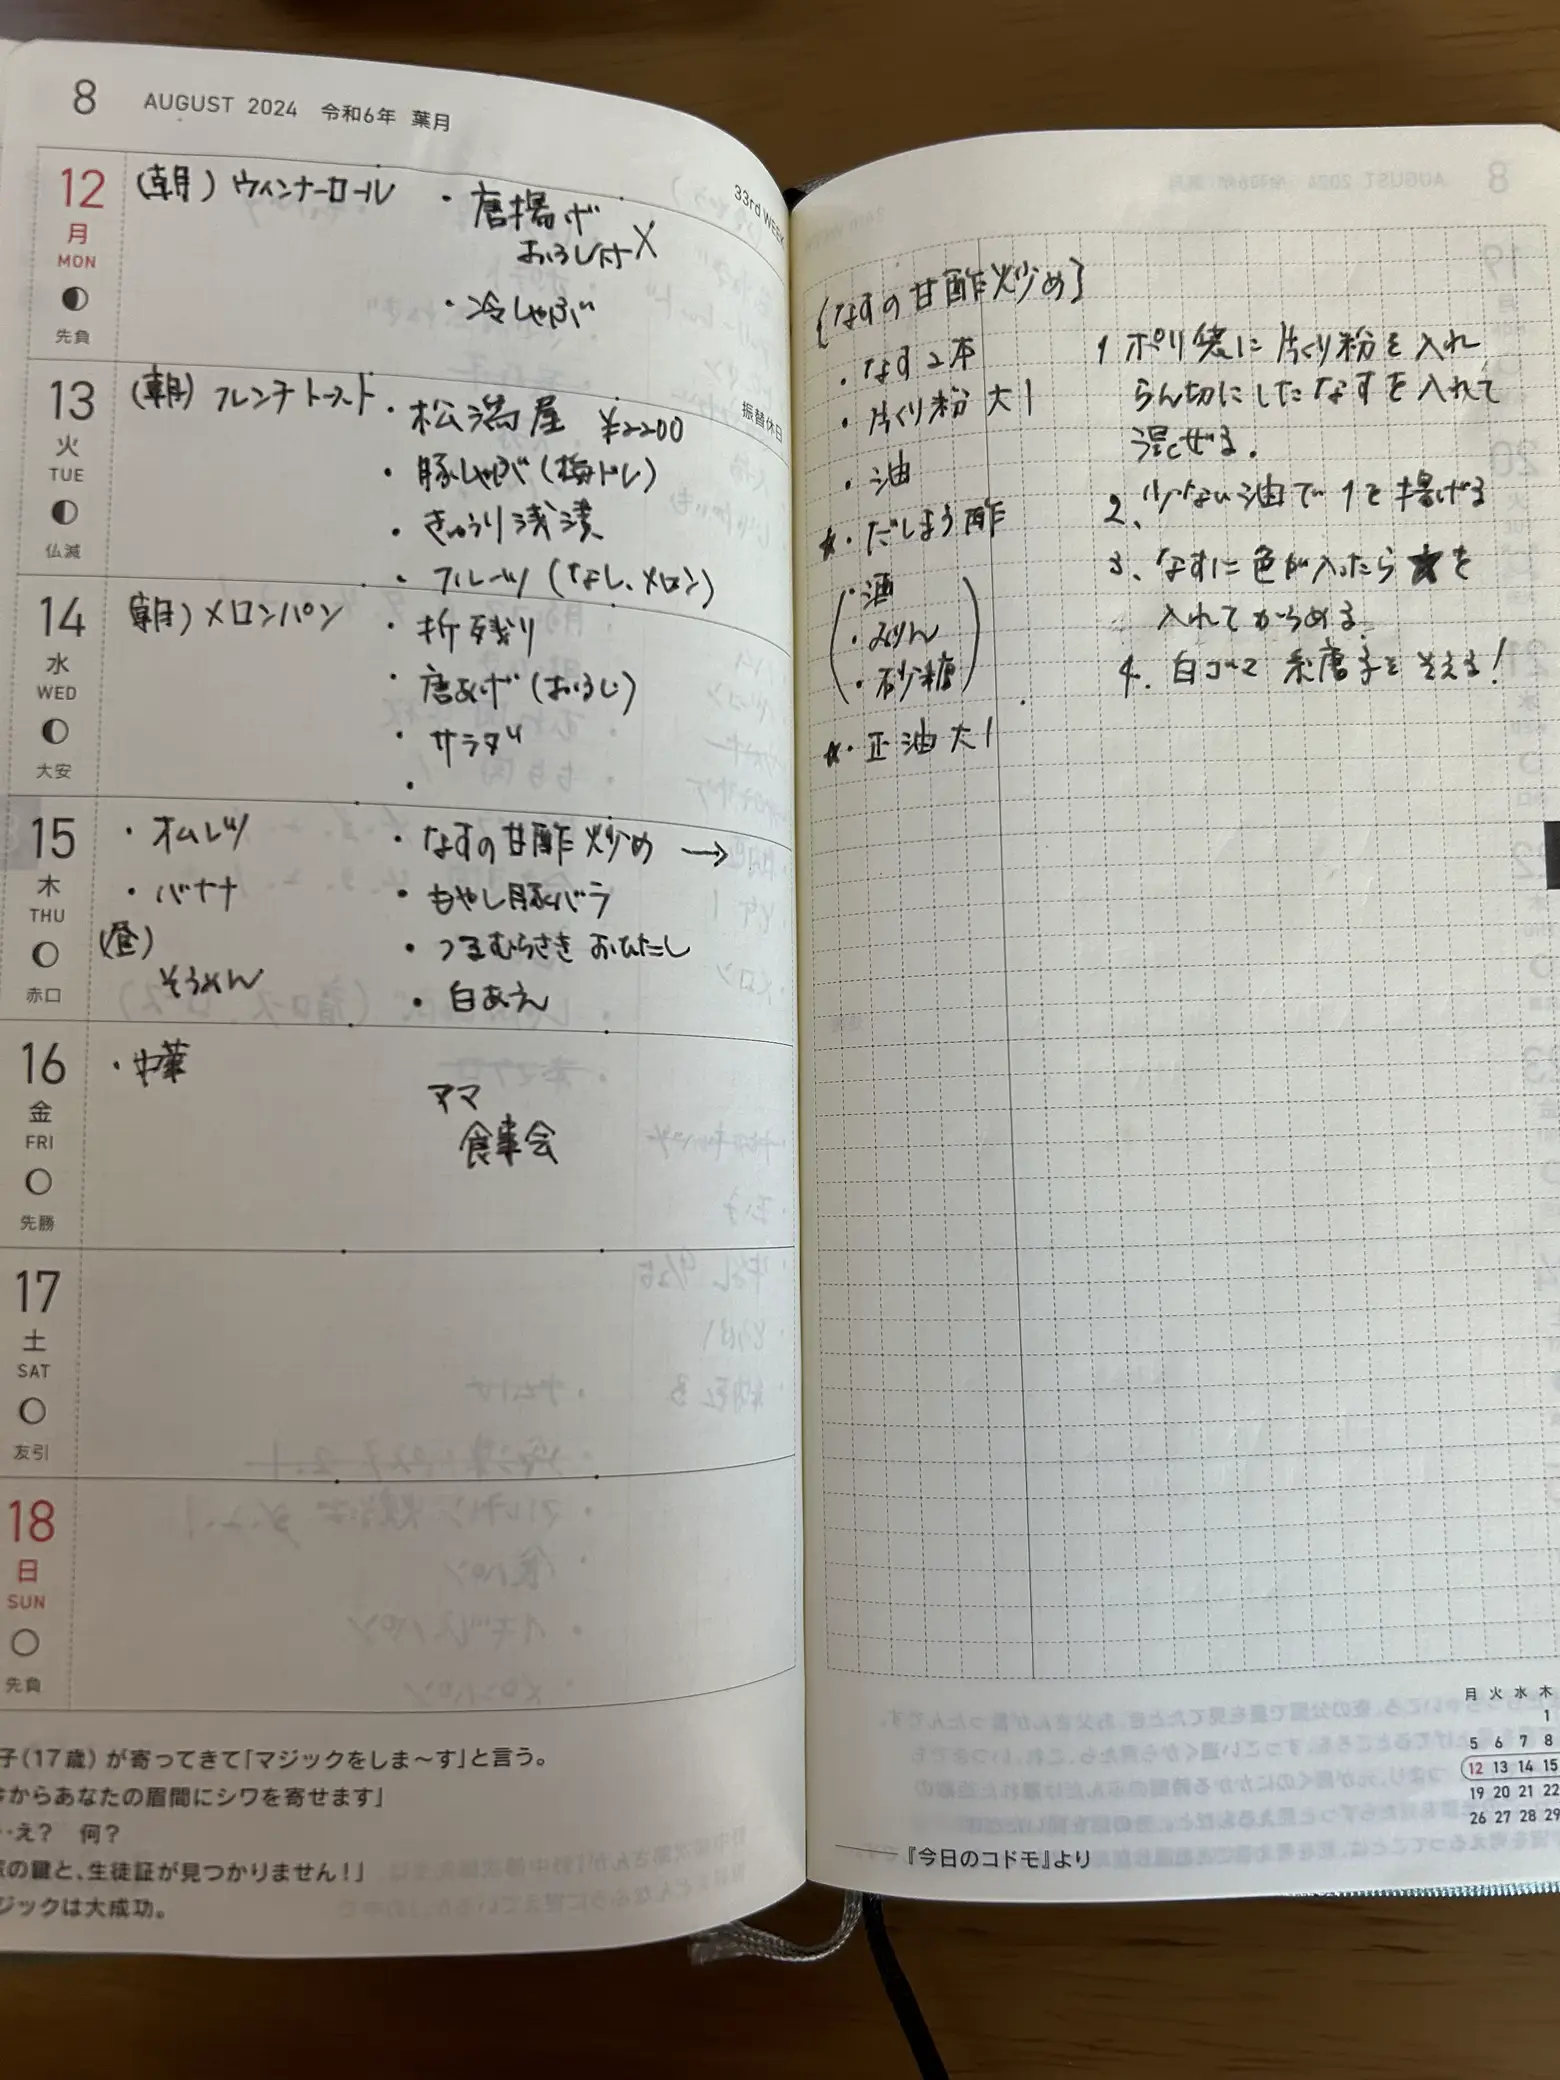 8 AUGUST 2024 令和6年 葉月
33rd WEEK
12 月 MON 先負
(朝) ウィンナーロール
・唐揚げ
おろし付 X
・冷しゃぶ
13 火 TUE 仏滅
振替休日
(朝) フレンチトースト
・松満屋 ¥2200
・豚しゃぶ (梅ドレ)
・きゅうり浅漬
・フルーツ (なし、メロン)
14 水 WED 大安
(朝) メロンパン
・折 残り
・唐あげ (おろし)
・サラダ
・
15 木 THU 赤口
・オムレツ
・バナナ
(昼)
そうめん
・なすの甘酢炒め →
・もやし豚バラ
・つるむらさき おひたし
・白あえ
16 金 FRI 先勝
・中華
アマ
食事会
17 土 SAT 友引
18 日 SUN 先負
子(17歳)が寄ってきて「マジックをしま〜す」と言う。
からあなたの眉間にシワを寄せます」
…え？ 何？
の鍵と、生徒証が見つかりません！」
ジックは大成功。
{なすの甘酢炒め}
・なす2本
・片くり粉 大1
・油
★・だしまろ酢
(・酒
・みりん
・砂糖)
★・正油大1
1 ポリ袋に片くり粉を入れ
らん切にしたなすを入れて
混ぜる.
2、少ない油で1を揚げる
3、なすに色が入ったら★を
入れてからめる
4. 白ゴマ 糸唐子をそえる!
月 火 水 木
1
5 6 7 8
12 13 14 15
19 20 21 22
26 27 28 29
『今日のコドモ』より